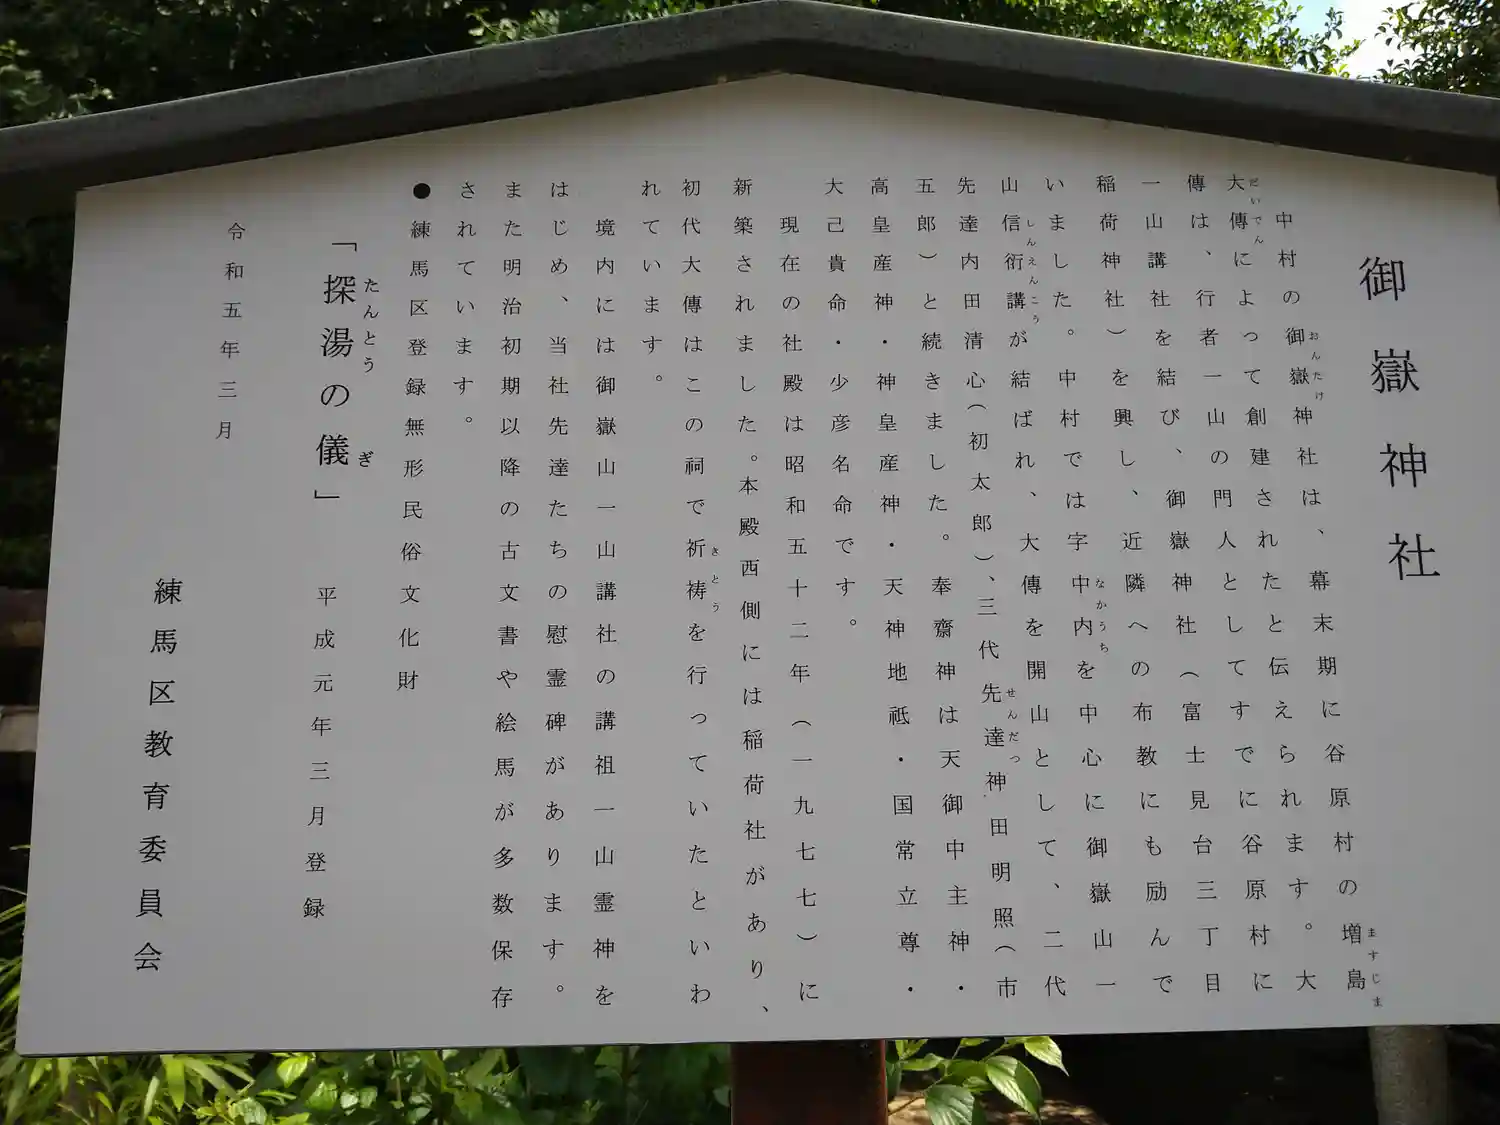 御嶽神社
中村の御嶽神社は、幕末期に谷原村の増島
大傳によって創建されたと伝えられます。大
傳は、行者一山の門人としてすでに谷原村に
一山講社を結び、御嶽神社（富士見台三丁目
稲荷神社）を興し、近隣への布教にも励んで
いました。中村では字中内を中心に御嶽山一
山信衍講が結ばれ、大傳を開山として、二代
先達内田清心（初太郎）、三代先達神田明照（市
五郎）と続きました。奉齋神は天御中主神・
高皇産神・神皇産神・天神地祇・国常立尊・
大己貴命・少彦名命です。
現在の社殿は昭和五十二年（一九七七）に
新築されました。本殿西側には稲荷社があり、
初代大傳はこの祠で祈祷を行っていたといわ
れています。
境内には御嶽山一山講社の講祖一山霊神を
はじめ、当社先達たちの慰霊碑があります。
また明治初期以降の古文書や絵馬が多数保存
されています。
●練馬区登録無形民俗文化財
「探湯の儀」 平成元年三月登録
令和五年三月
練馬区教育委員会
おんたけ
ますじま
だいでん
なかうち
しんえんこう
せんだつ
きとう
たんとう ぎ